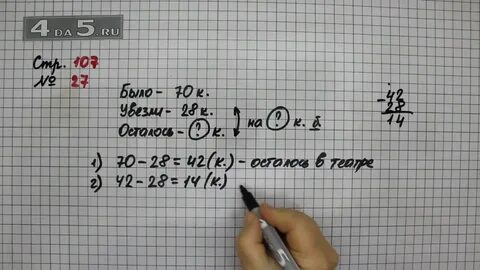 4 DA 5.RU
Стр. 107
№ 27
Было - 70 к.
Увезли - 28 к.
Осталось - ? к. на ? к. б
1) 70 - 28 = 42 (к.) - осталось в театре
2) 42 - 28 = 14 (к.)
- 42
28
14